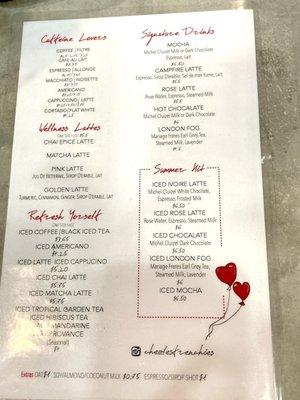 Caffeine Lovers
COFFEE | FILTRE
CAFE AU LAIT
ESPRESSO / ALLONGE
MACCHIATO / NOISETTE
AMERICANO
CAPPUCCINO / LATTE
CORTADO / FLAT WHITE
Wellness Lattes
CHAI EPICE LATTE
MATCHA LATTE
PINK LATTE
JUS DE BETTERAVE, SIROP D'ERABLE, LAIT
GOLDEN LATTE
TURMERIC, CINNAMON, GINGER, SIROP D'ERABLE, LAIT
Refresh Yorself
ICED COFFEE | BLACK ICED TEA
ICED AMERICANO
ICED LATTE ICED CAPPUCCINO
$5.20
ICED CHAI LATTE
ICED MATCHA LATTE
ICED TROPICAL GARDEN TEA
ICED HIBISCUS TEA
MANDARINE
PROVANCE
(Seasonal)
Signature Drinks
MOCHA
Michel Cluizel Milk or Dark Chocolate
Espresso, Lait
CAMPFIRE LATTE
Espresso, Sirop D'erable, Sel de mer fume, Lait
ROSE LATTE
Rose Water, Espresso, Steamed Milk
HOT CHOCOLATE
Michel Cluizel Milk or Dark Chocolate
LONDON FOG
Mariage Freres Earl Grey Tea,
Steamed Milk, Lavender
Summer Hit
ICED IVOIRE LATTE
Michel Cluizel White Chocolate,
Espresso, Frosted Milk
$6.50
ICED ROSE LATTE
Rose Water, Espresso, Steamed Milk
$6.50
ICED CHOCOLATE
Michel Cluizel Dark Chocolate
$6.50
ICED LONDON FOG
Mariage Freres Earl Grey Tea,
Steamed Milk, Lavender
$6.50
ICED MOCHA
$6.50
chezlesfrenchies
Extras OAT $1 SOY/ALMOND/COCONUT MILK $0.75 ESPRESSO/SIROP SHOT $1